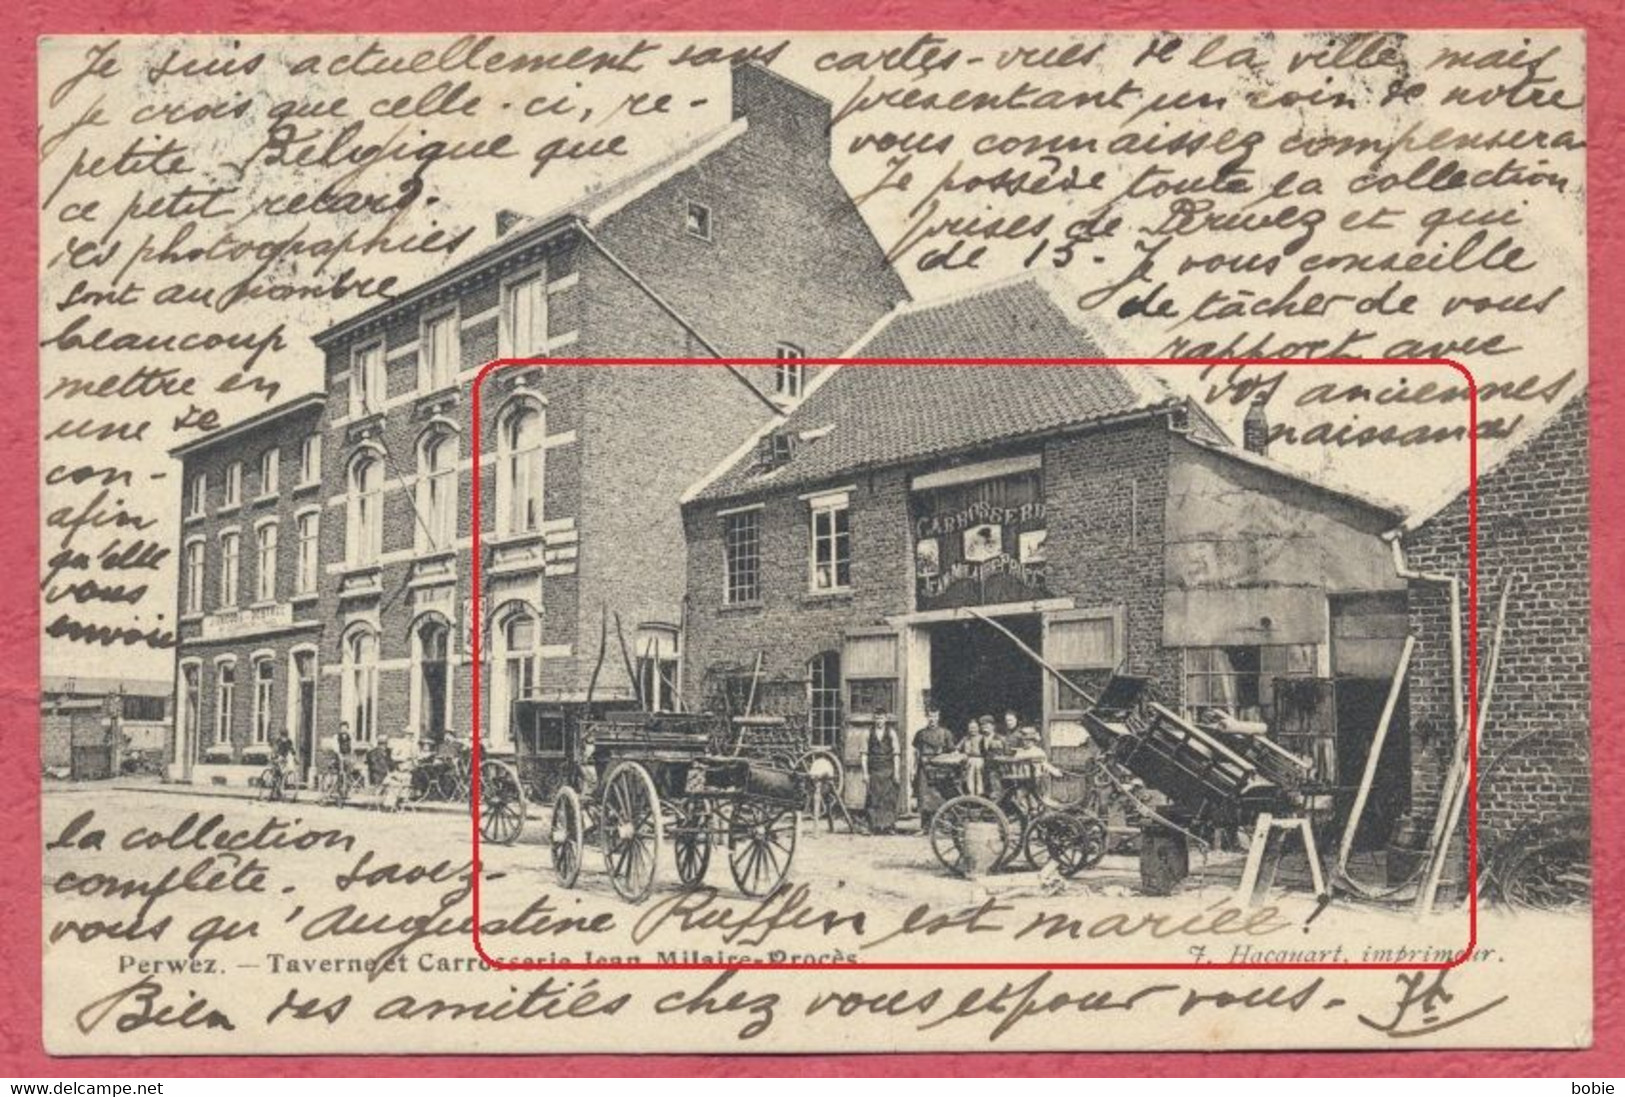 Je suis actuellement sans cartes-vues de la ville mais
je crois que celle-ci, re- présentant un coin de notre
petite Belgique que vous connaissez compensera
ce petit retard. Je possède toute la collection
des photographies prises de Perwez et qui
sont au nombre de 15. Je vous conseille
beaucoup de tâcher de vous
mettre en rapport avec
une de vos anciennes
con- naissances
afin
qu'elle
vous
envoie
CARROSSERIE
JEAN MILAIRE-PROCÈS
la collection
complète. Savez-
vous qu'Augustine Ruffin est mariée!
Perwez. — Taverne et Carrosserie Jean Milaire-Procès.
J. Hacquart, imprimeur.
Bien des amitiés chez vous et pour vous.
delcampe.net
bobie